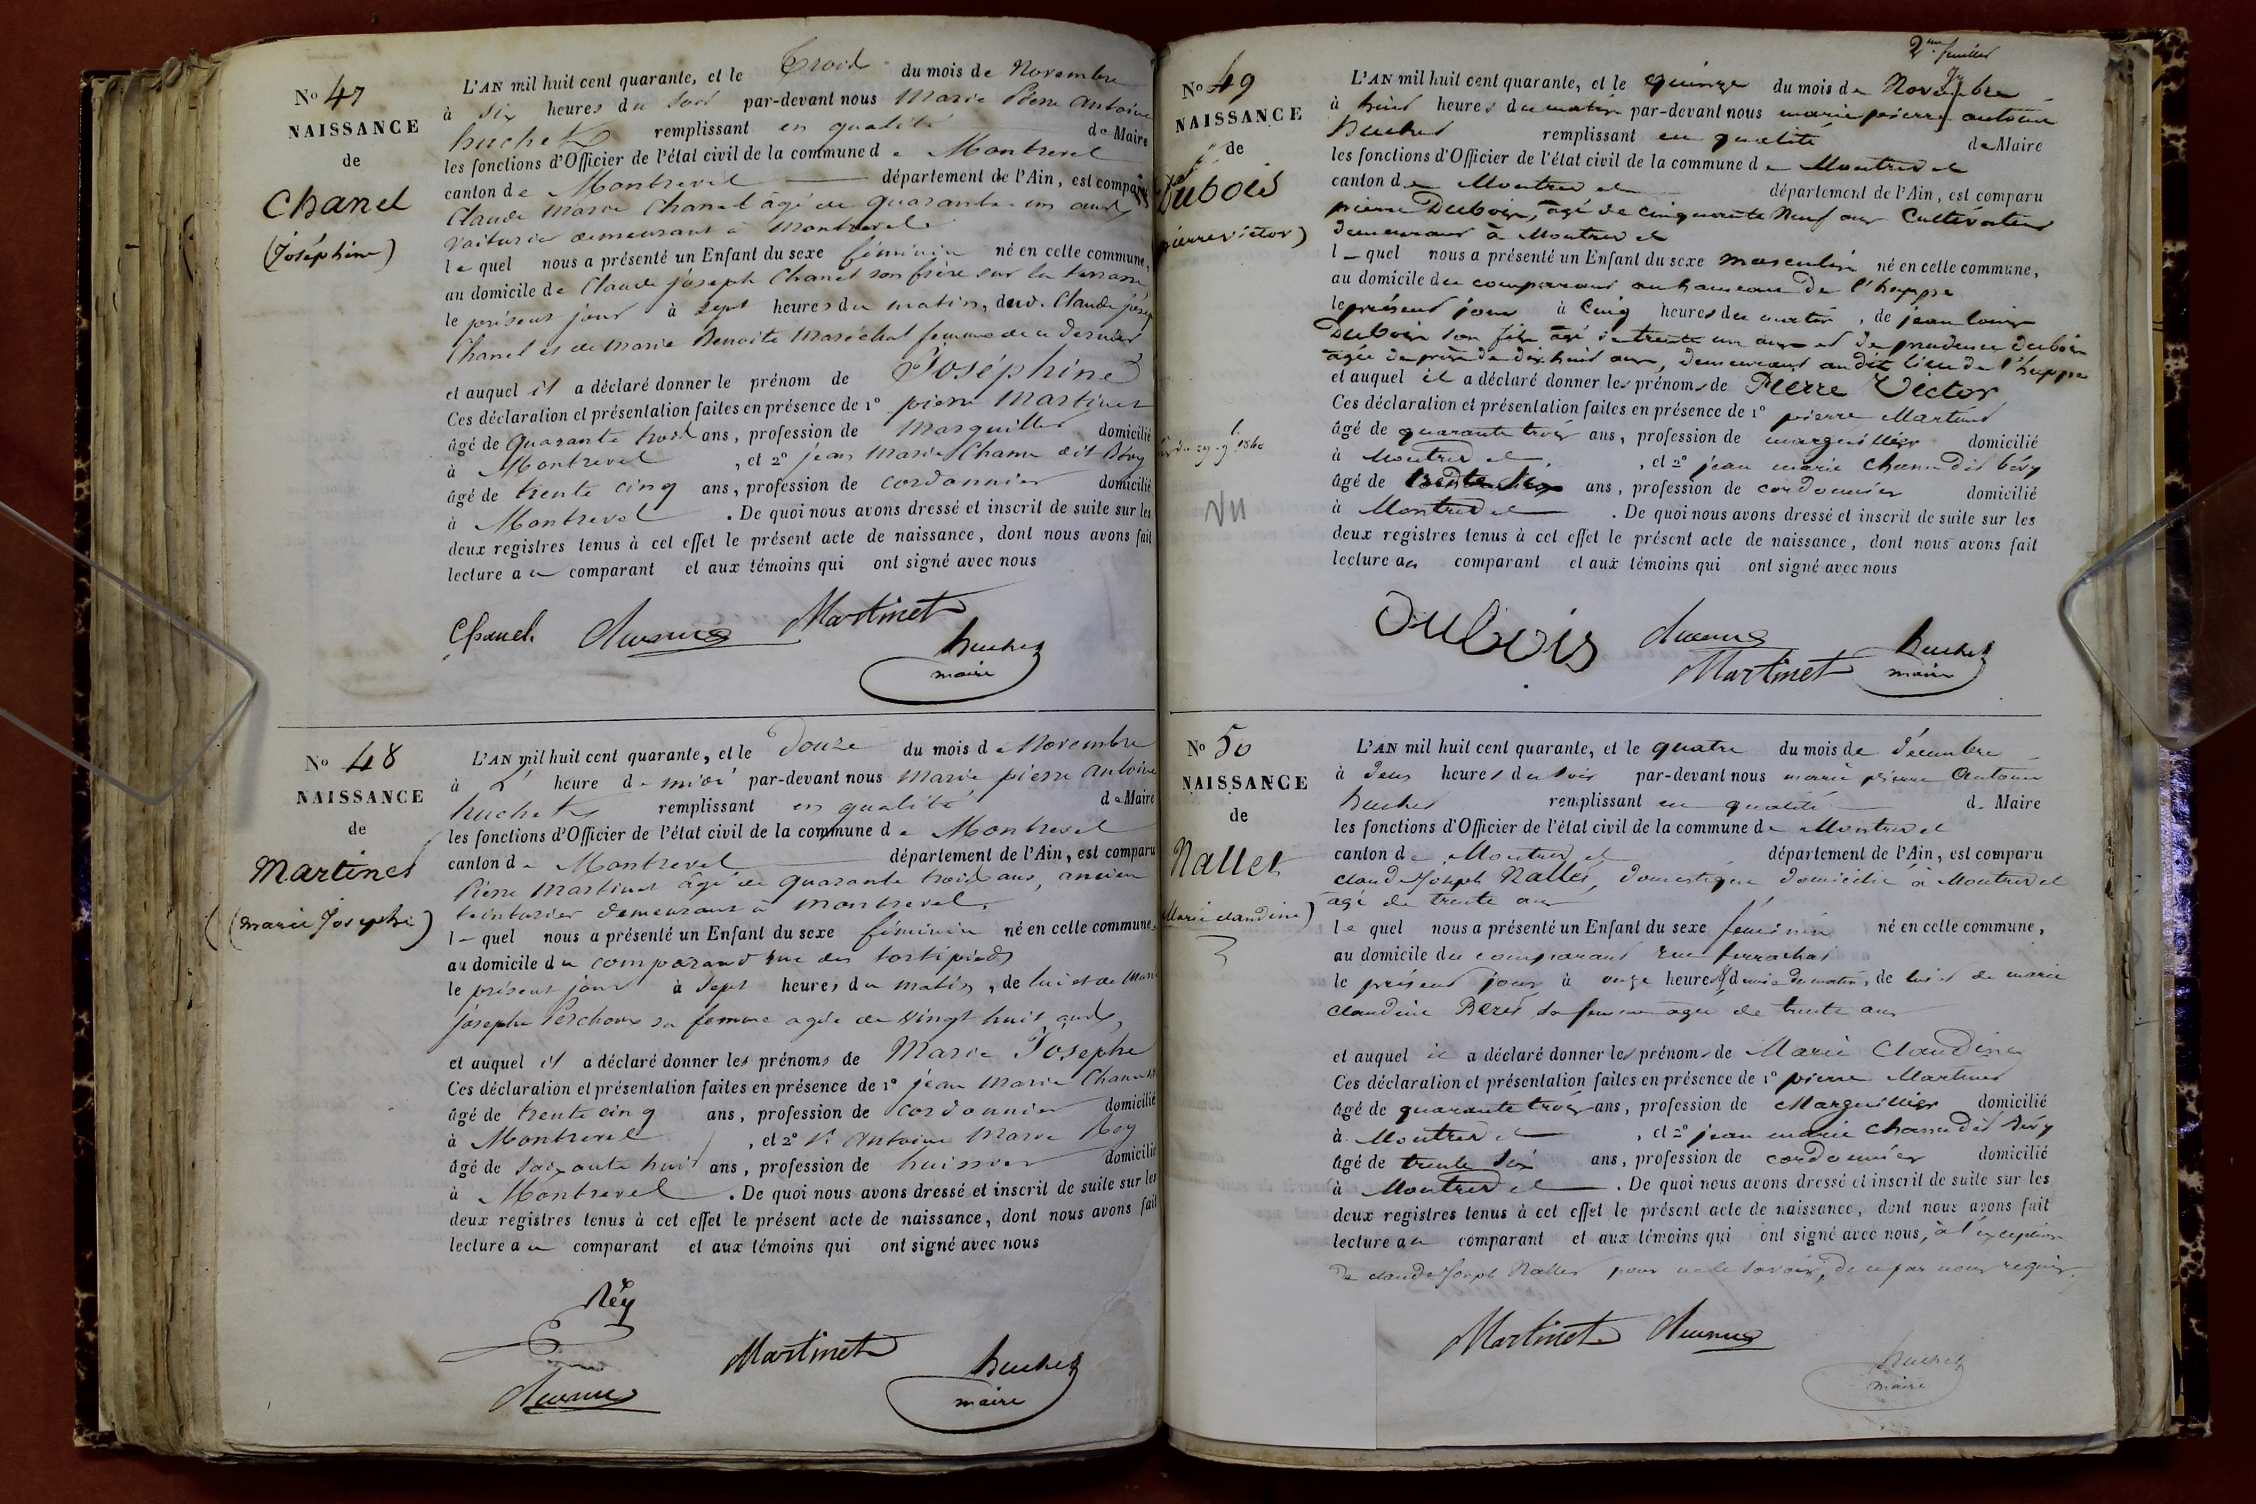 No 47
NAISSANCE
de
Chanel
(Joséphine)
L'AN mil huit cent quarante, et le trois du mois de Novembre
à six heures du soir par-devant nous Marie Pierre Antoine
huchet remplissant en qualité de Maire
les fonctions d'Officier de l'état civil de la commune de Montrevel
canton de Montrevel département de l'Ain, est comparu
Claude Marie Chanel âgé de quarante un ans
voiturier demeurant à Montrevel
lequel nous a présenté un Enfant du sexe féminin né en cette commune,
au domicile de Claude joseph Chanel son frère sur la terrasse
le présent jour à sept heures du matin, dud. Claude josep
Chanel et de Marie Benoite Maréchal femme de ce dernier
et auquel il a déclaré donner le prénom de Joséphine
Ces déclaration et présentation faites en présence de 1º pierre Martinet
âgé de quarante trois ans, profession de Marguillier domicilié
à Montrevel, et 2º jean Marie Chanu dit Bévy
âgé de trente cinq ans, profession de cordonnier domicilié
à Montrevel. De quoi nous avons dressé et inscrit de suite sur les
deux registres tenus à cet effet le présent acte de naissance, dont nous avons fait
lecture au comparant et aux témoins qui ont signé avec nous
Chanel Martinet
huchet
maire
No 48
NAISSANCE
de
Martinet
(marie Josephe)
L'AN mil huit cent quarante, et le douze du mois de Novembre
à L' heure de midi par-devant nous Marie pierre Antoine
huchet remplissant en qualité de Maire
les fonctions d'Officier de l'état civil de la commune de Montrevel
canton de Montrevel département de l'Ain, est comparu
Pierre Martinet âgé de quarante trois ans, ancien
teinturier demeurant à Montrevel
l-quel nous a présenté un Enfant du sexe féminin né en cette commune,
au domicile du comparant rue des
le présent jour à sept heures du matin, de lui et de Marie
josephe sa femme agée de vingt huit ans
et auquel il a déclaré donner les prénoms de Marie Josephe
Ces déclaration et présentation faites en présence de 1º jean Marie Chanu
âgé de trente cinq ans, profession de cordonnier domicilié
à Montrevel, et 2º Antoine Marie Rey
âgé de soixante huit ans, profession de huissier domicilié
à Montrevel. De quoi nous avons dressé et inscrit de suite sur les
deux registres tenus à cet effet le présent acte de naissance, dont nous avons fait
lecture au comparant et aux témoins qui ont signé avec nous
Rey
Martinet
huchet
maire
2me feuillet
No 49
NAISSANCE
de
Dubois
(pierre victor)
1840
Vu
L'AN mil huit cent quarante, et le quinze du mois de Novembre
à huit heures du matin par-devant nous marie pierre antoine
huchet remplissant en qualité de Maire
les fonctions d'Officier de l'état civil de la commune de Montrevel
canton de Montrevel département de l'Ain, est comparu
pierre Dubois, âgé de cinquante Neuf ans Cultivateur
demeurant à Montrevel
l-quel nous a présenté un Enfant du sexe masculin né en cette commune,
au domicile du comparant au hameau de l'huppe
le présent jour à cinq heures du matin, de jean louis
Dubois son fils âgé de trente un ans et de prudence dubois
âgée de près de dix huit ans, demeurant audit lieu de l'huppe
et auquel il a déclaré donner les prénoms de Pierre Victor
Ces déclaration et présentation faites en présence de 1º pierre Martinet
âgé de quarante trois ans, profession de marguillier domicilié
à Montrevel, et 2º jean marie chanu dit bévy
âgé de trente six ans, profession de cordonnier domicilié
à Montrevel. De quoi nous avons dressé et inscrit de suite sur les
deux registres tenus à cet effet le présent acte de naissance, dont nous avons fait
lecture au comparant et aux témoins qui ont signé avec nous
Dubois
Martinet
huchet
maire
No 50
NAISSANCE
de
Nallet
(Marie claudine)
L'AN mil huit cent quarante, et le quatre du mois de décembre
à deux heures du soir par-devant nous marie pierre Antoine
huchet remplissant en qualité de Maire
les fonctions d'Officier de l'état civil de la commune de Montrevel
canton de Montrevel département de l'Ain, est comparu
claude Joseph Nallet, domestique domicilié à Montrevel
âgé de trente ans
lequel nous a présenté un Enfant du sexe féminin né en cette commune,
au domicile du comparant rue
le présent jour à onze heures & demie du matin, de lui et de marie
claudine sa femme agée de trente ans
et auquel il a déclaré donner les prénoms de Marie Claudine
Ces déclaration et présentation faites en présence de 1º pierre Martinet
âgé de quarante trois ans, profession de Marguillier domicilié
à Montrevel, et 2º jean marie chanu dit Bévy
âgé de trente six ans, profession de cordonnier domicilié
à Montrevel. De quoi nous avons dressé et inscrit de suite sur les
deux registres tenus à cet effet le présent acte de naissance, dont nous avons fait
lecture au comparant et aux témoins qui ont signé avec nous, à l'exception
de claude Joseph Nallet pour ne le savoir, de ce par nous requis.
Martinet
huchet
maire